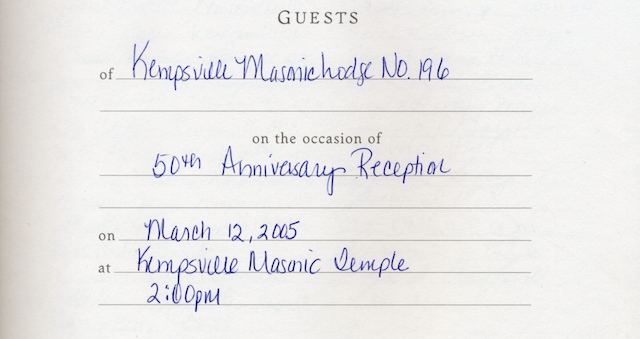 GUESTS
of Kempsville Masonic Lodge No. 196
on the occasion of
50th Anniversary Reception
on March 12, 2005
at Kempsville Masonic Temple
2:00pm